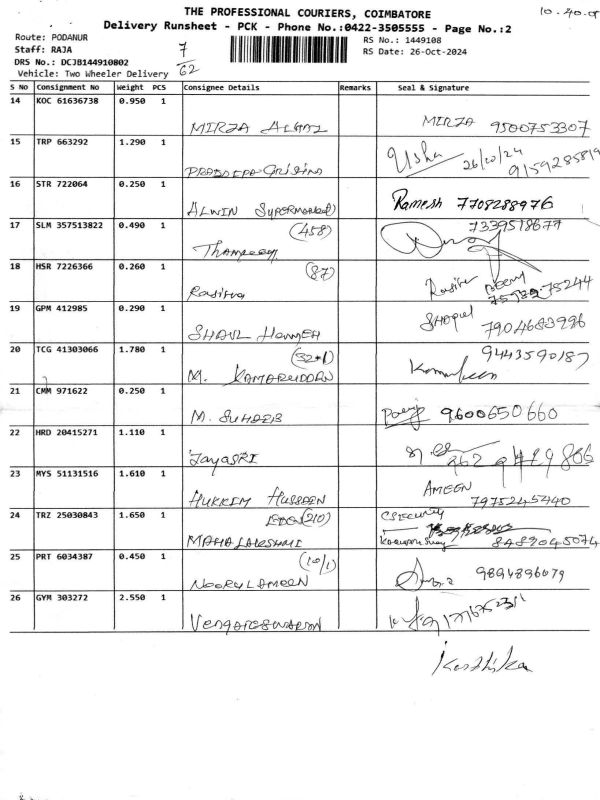 THE PROFESSIONAL COURIERS, COIMBATORE
Delivery Runsheet - PCK - Phone No.:0422-3505555 - Page No.:2
Route: PODANUR
RS No.: 1449108
Staff: RAJA
7
62
RS Date: 26-Oct-2024
DRS No.: DCJB144910802
Vehicle: Two Wheeler Delivery
S No Consignment No Weight PCS Consignee Details Remarks Seal & Signature
14 KOC 61636738 0.950 1
MIRZA
MIRZA 9500753307
15 TRP 663292 1.290 1
Usha 26/10/24
16 STR 722064 0.250 1
ALWIN SUPERMARKET
Ramesh 7708288976
17 SLM 357513822 0.490 1
(458)
7339518677
18 HSR 7226366 0.260 1
(87)
19 GPM 412985 0.290 1
7904683996
20 TCG 41303066 1.780 1
(32+1)
M. KAMARUDDEEN
9443590187
21 CMM 971622 0.250 1
M. SUHAEB
9600650660
22 HRD 20415271 1.110 1
JAYASRI
23 MYS 51131516 1.610 1
HUKKIM HUSSAEN
AMEEN
7975245440
24 TRZ 25030843 1.650 1
EDEN (210)
MAHALAKSHMI
Security
8489045074
25 PRT 6034387 0.450 1
(10/1)
NOORULAMEEN
9894896079
26 GYM 303272 2.550 1
VENGADESWARAN
Karthika